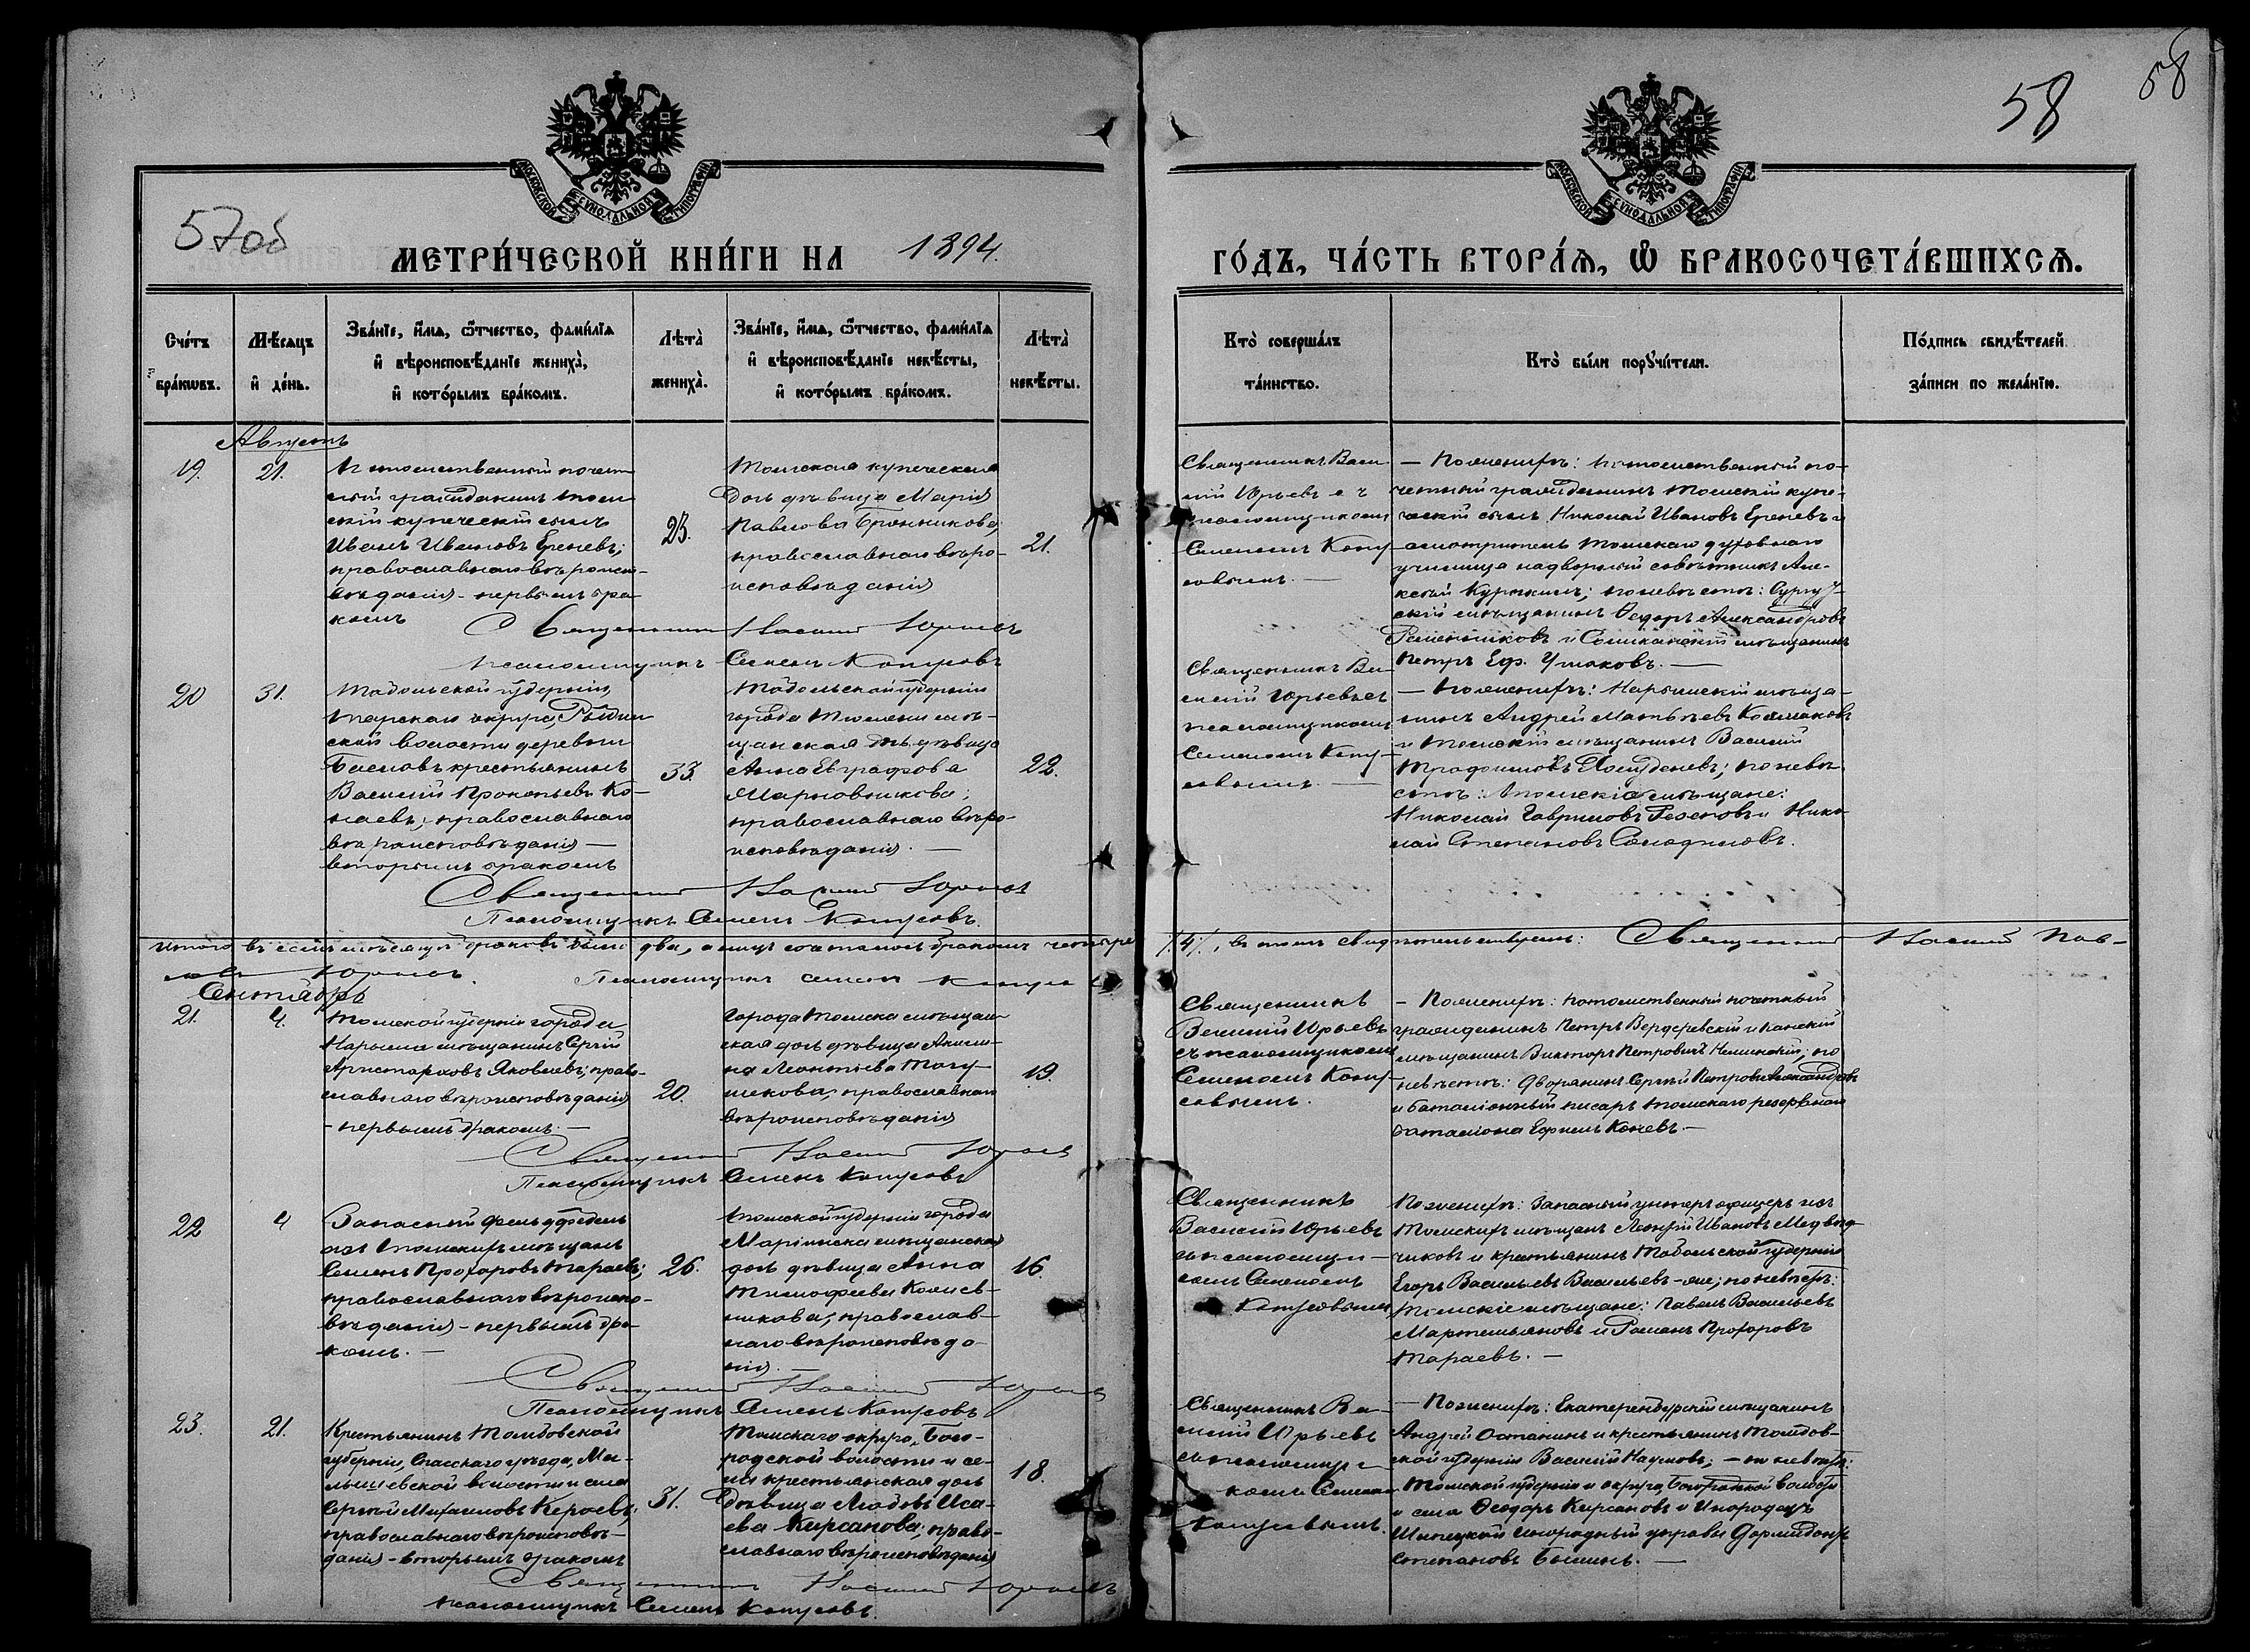 58
58
57об
МОСКОВСКОЙ СѴНОДАЛЬНОЙ ТИПОГРАФІИ
МОСКОВСКОЙ СѴНОДАЛЬНОЙ ТИПОГРАФІИ
МЕТРИ́ЧЕСКОЙ КНИ́ГИ НА 1894.
ГО́ДЪ, ЧА́СТЬ ВТОРА́Ѧ, Ѽ БРАКОСОЧЕТА́ВШИХСѦ.
Сче́тъ бра́кѡвъ.
Мѣ́сѧцъ и҆ де́нь.
Зва́нїе, и҆́мѧ, ѻ҆́тчество, фами́лїѧ
и҆ вѣроисповѣ́данїе жениха̀,
и҆ кото́рымъ бра́комъ.
Лѣта̀ жениха̀.
Зва́нїе, и҆́мѧ, ѻ҆́тчество, фами́лїѧ
и҆ вѣроисповѣ́данїе невѣ́сты,
и҆ кото́рымъ бра́комъ.
Лѣта̀ невѣ́сты.
Кто̀ соверша́лъ
та́инство.
Кто̀ бы́ли порꙋчи́тели.
По́дпись свидѣ́телей
за́писи по жела́нїю.
Августъ
19.
21.
Потомственный почет-
ный гражданинъ том-
скій купеческій сынъ
Иванъ Ивановъ Ереневъ;
православнаго вѣроиспо-
вѣданія - первымъ бра-
комъ
23.
Томская купеческая
дочь дѣвица Марія
Павлова Бронникова,
православнаго вѣро-
исповѣданія
21.
Священникъ Васи-
лій Юрьевъ съ
псаломщикомъ
Семеномъ Капу-
совымъ. —
— По женихѣ: потомственный по-
четный гражданинъ томскій купе-
ческій сынъ Николай Ивановъ Ереневъ и
смотритель томскаго духовнаго
училища надворный совѣтникъ Але-
ксѣй Курочкинъ; по невѣстѣ: Сургут-
скій мѣщанинъ Ѳедоръ Александровъ
мѣщанинъ
Петръ Еф. Ушаковъ. —
Священникъ Василій Юрьевъ
псаломщикъ Семенъ Капусовъ
20
31.
Тобольской губерніи,
Тарскаго округа,
ской волости деревни
крестьянинъ
Василій Прокопьевъ Ко-
наевъ; православнаго
вѣроисповѣданія —
вторымъ бракомъ
33.
Тобольской губерніи
города Тюмени мѣ-
щанская дочь дѣвица
Анна Евграфова
православнаго вѣро-
исповѣданія. —
22.
Священникъ Ва-
силій Юрьевъ съ
псаломщикомъ
Семеномъ Капу-
совымъ. —
— По женихѣ: Нарымскій мѣща-
нинъ Андрей Матвѣевъ Колмаковъ
и томскій мѣщанинъ Василій
по невѣ-
стѣ: томскіе мѣщане:
Николай Гавриловъ и Нико-
лай Степановъ Солодиловъ.
Священникъ Василій Юрьевъ
Псаломщикъ Семенъ Капусовъ.
Итого въ семъ мѣсяцѣ браковъ было два, а лицъ сочетаныхъ бракомъ четыре /4/, въ томъ свидѣтельствуемъ: Священникъ Василій Пав-
ловъ Юрьевъ. Псаломщикъ Семенъ Капусовъ
Сентябрь
21.
4.
Томской губерніи города
Нарыма мѣщанинъ Сергій
Аристарховъ Яковлевъ; право-
славнаго вѣроисповѣданія
- первымъ бракомъ. —
20.
Города Томска мѣщан-
ская дочь дѣвица Акили-
на Леонтьева
православнаго
вѣроисповѣданія
19.
Священникъ
Василій Юрьевъ
съ псаломщикомъ
Семеномъ Капу-
совымъ.
— По женихѣ: потомственный почетный
гражданинъ Петръ Вердеревскій и Каинскій
мѣщанинъ Викторъ Петровичъ по
невѣстѣ: дворянинъ Сергѣй Петровъ Александровъ
и баталіонный писарь томскаго резервнаго
баталіона Ефимъ Коневъ. —
Священникъ Василій Юрьевъ
Псаломщикъ Семенъ Капусовъ
22
4
Запасный фельдфебель
изъ томскихъ мѣщанъ
Семенъ Прохоровъ Тараевъ;
православнаго вѣроиспо-
вѣданія - первымъ бра-
комъ. —
26.
Томской губерніи города
Маріинска мѣщанская
дочь дѣвица Анна
Тимофеева
православ-
наго вѣроисповѣда-
нія. —
16.
Священникъ
Василій Юрьевъ
съ псаломщи-
комъ Семеномъ
Капусовымъ
По женихѣ: Запасный унтеръ офицеръ изъ
томскихъ мѣщанъ Ивановъ Медвѣд-
чиковъ и крестьянинъ Тобольской губерніи
Егоръ Васильевъ Васильевъ-же; по невѣстѣ:
томскіе мѣщане: Павелъ Васильевъ
Мартемьяновъ и Романъ Прохоровъ
Тараевъ. —
Священникъ Василій Юрьевъ
Псаломщикъ Семенъ Капусовъ
23.
21.
Крестьянинъ Тамбовской
губерніи, Спасскаго уѣзда,
волости и села
Сергѣй Михаиловъ
православнаго вѣроисповѣ-
данія - вторымъ бракомъ
31.
Томскаго округа, Бого-
родской волости и се-
ла крестьянская дочь
дѣвица Любовь Иса-
ева Кирсанова; право-
славнаго вѣроисповѣданія
18.
Священникъ Ва-
силій Юрьевъ
съ псаломщи-
комъ Семеномъ
Капусовымъ.
— По женихѣ: Екатеринбургскій мѣщанинъ
Андрей Останинъ и крестьянинъ Тамбов-
ской губерніи Василій Наумовъ; — по невѣстѣ:
Томской губерніи и округа, Богородской волости
и села Ѳеодоръ Кирсановъ и Инородецъ
инородной управы Дормидонтъ
Степановъ —
Священникъ Василій Юрьевъ
псаломщикъ Семенъ Капусовъ.